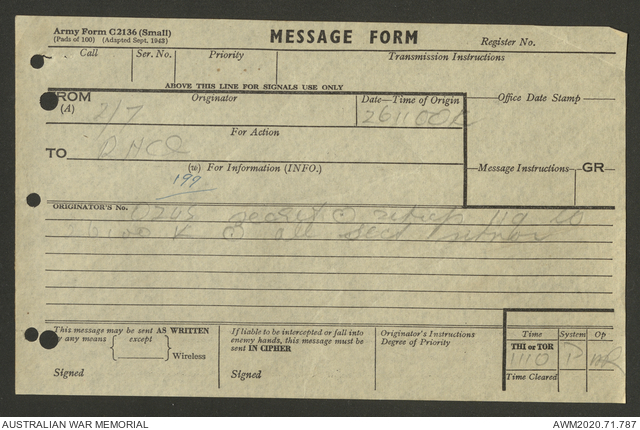 Army Form C2136 (Small)
(Pads of 100) (Adapted Sept. 1943)
MESSAGE FORM
Register No.
Call
Ser. No.
Priority
Transmission Instructions
ABOVE THIS LINE FOR SIGNALS USE ONLY
FROM
(A)
Originator
Date—Time of Origin
Office Date Stamp
2/7
261100K
For Action
TO
(w) For Information (INFO.)
Message Instructions
GR
199
ORIGINATOR'S No.
secret
261100 K all
This message may be sent AS WRITTEN
by any means except
Wireless
Signed
If liable to be intercepted or fall into
enemy hands, this message must be
sent IN CIPHER
Signed
Originator's Instructions
Degree of Priority
Time System Op
THI or TOR
1110
Time Cleared
AUSTRALIAN WAR MEMORIAL
AWM2020.71.787